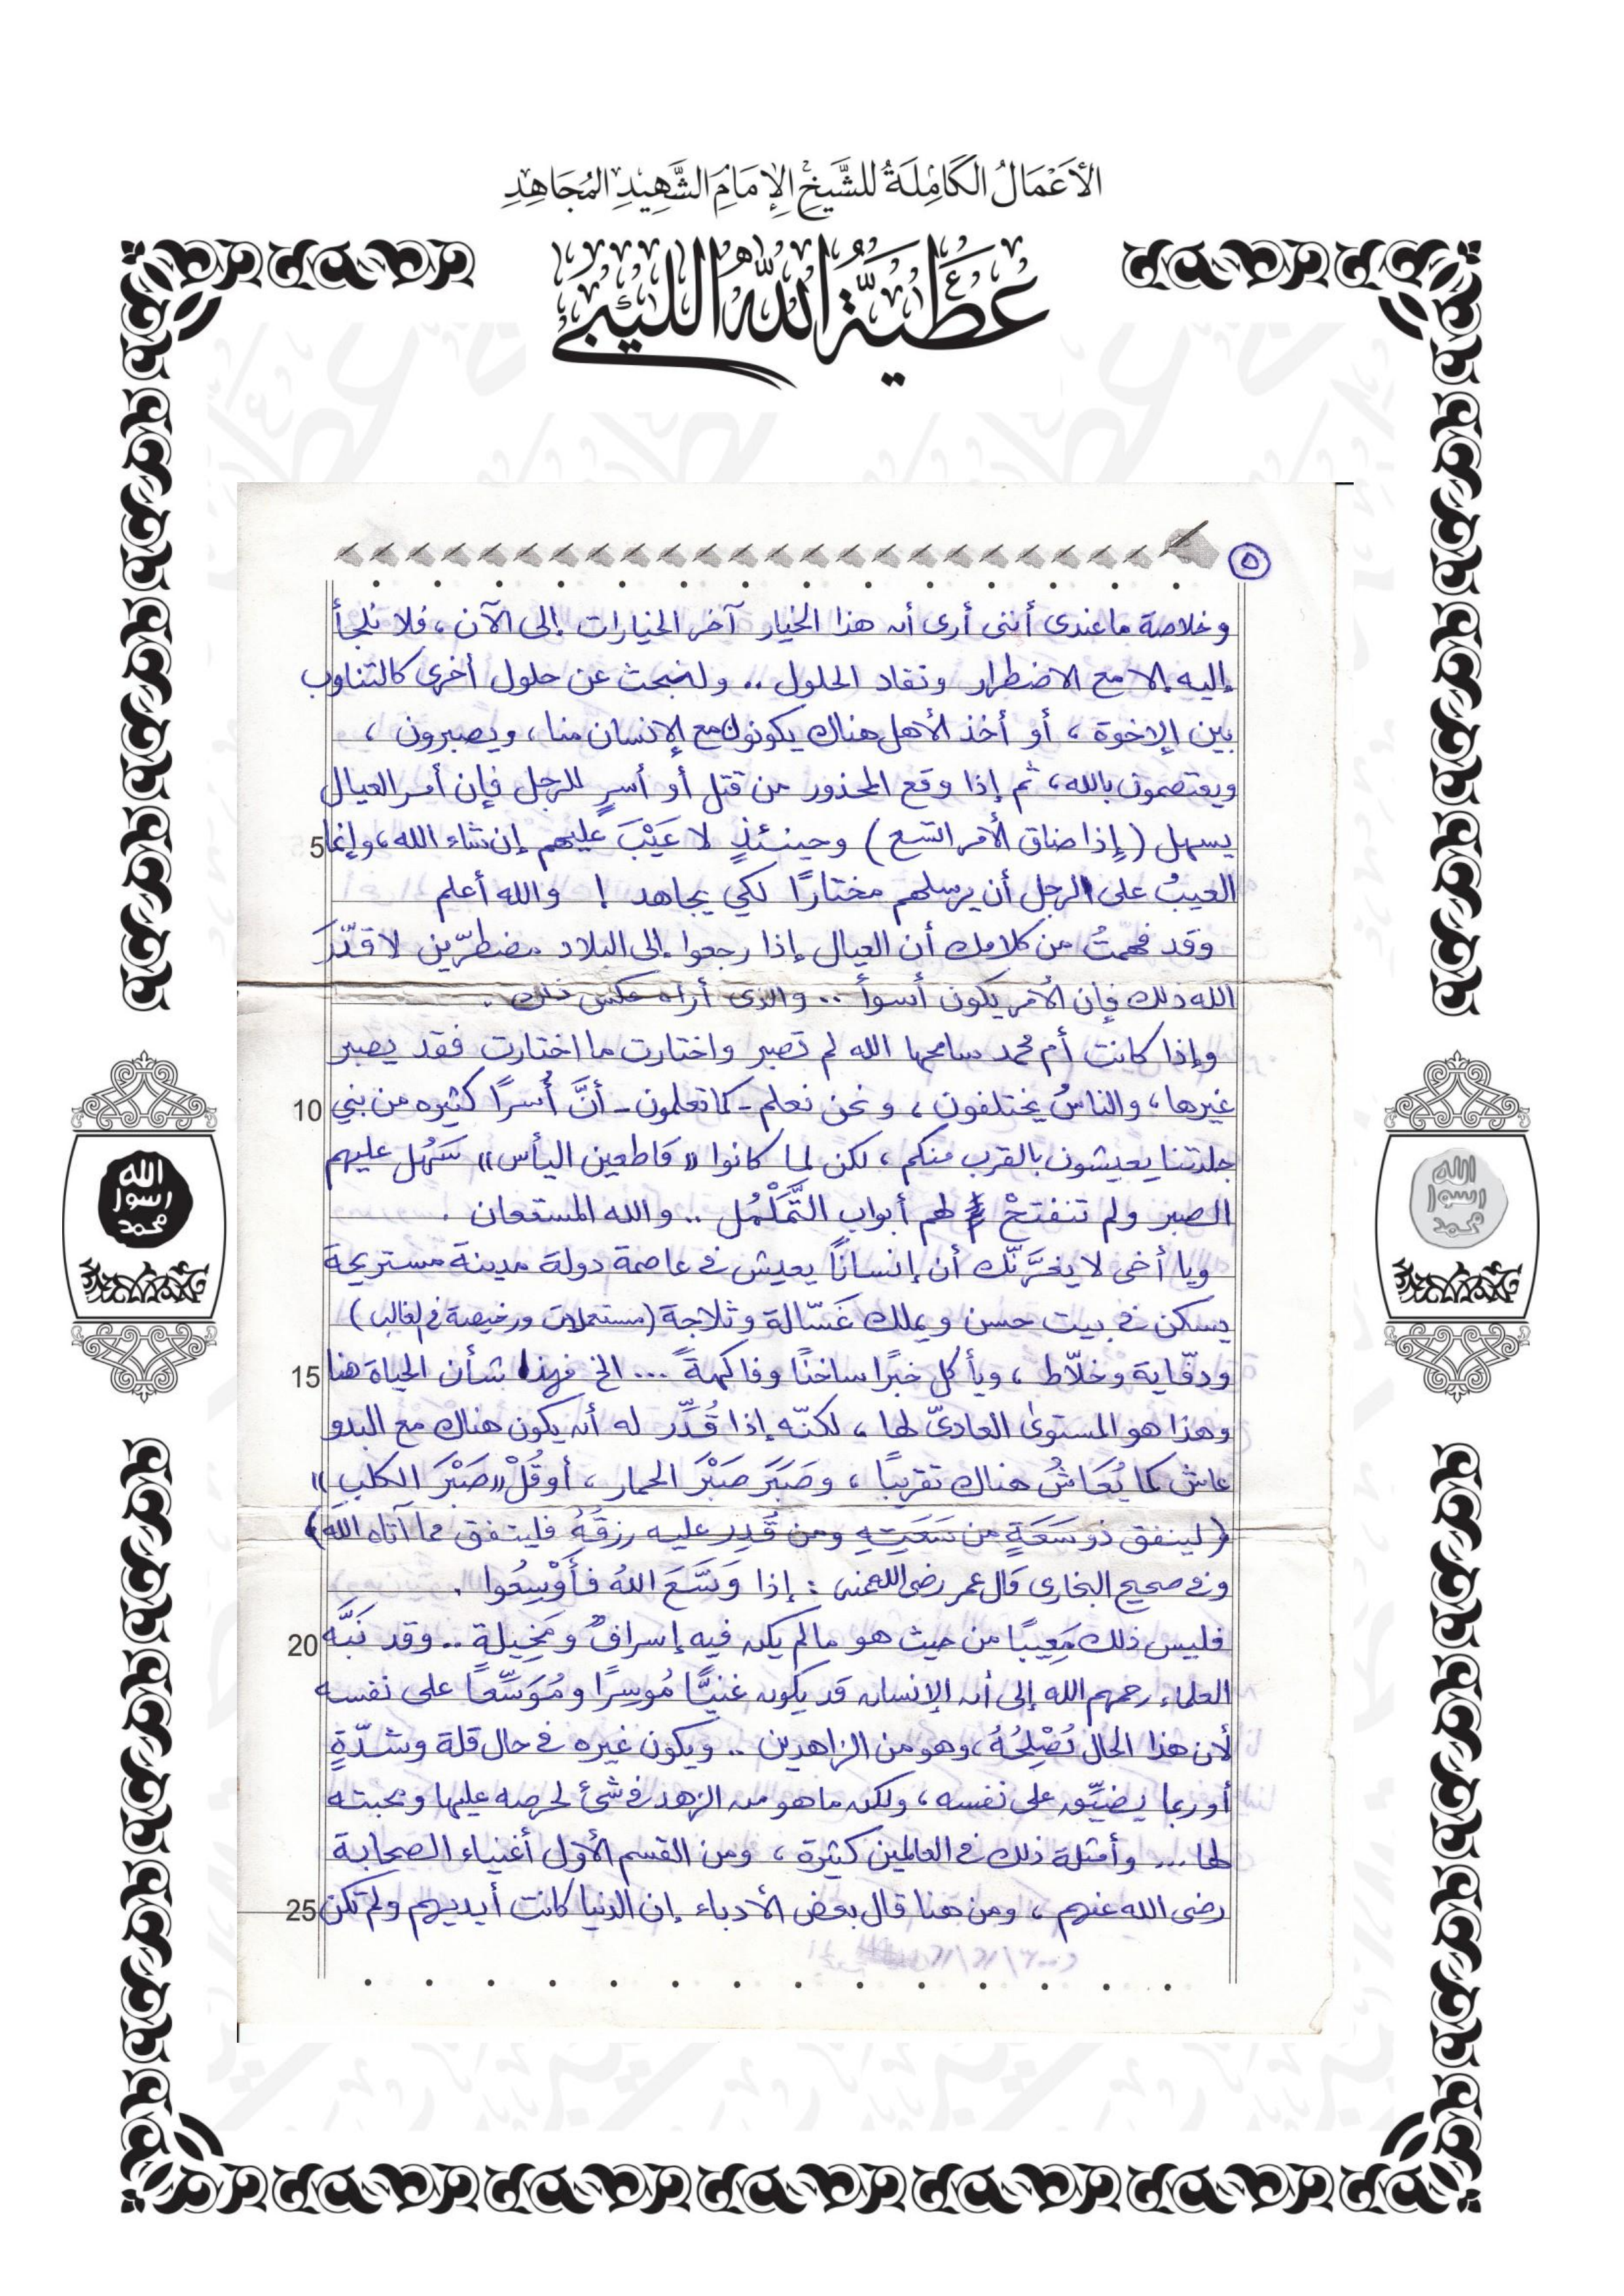 الأَعْمَالُ الكَامِلَةُ للشَّيخِ الإِمَامِ الشَّهِيدِ المُجَاهِدِ
عَطِيَّةُ اللهِ اللِّيبِيّ
٥
وخلاصة ما عندى أننى أرى أن هذا الخيار آخر الخيارات إلى الآن ، فلا نلجأ
إليه إلا مع الاضطرار ونفاد الحلول .. ولنبحث عن حلول أخرى كالتناوب
بين الإخوة ، أو أخذ الأهل هناك يكونون مع الإنسان منا ، ويصبرون ،
ويعتصمون بالله ، ثم إذا وقع المحذور من قتل أو أسرٍ للرجل فإن أمر العيال
5 يسهل (إذا ضاق الأمر اتسع) وحينئذٍ لا عَيْبَ عليهم إن شاء الله ، وإنما
العيبُ على الرجل أن يرسلهم مختارًا لكي يجاهد ! والله أعلم
وقد فهمتُ من كلامك أن العيال إذا رجعوا إلى البلاد مضطرّين لا قدّرَ
الله ذلك فإن الأمر يكون أسوأ .. والذى أراه عكس ذلك .
وإذا كانت أم محمد سامحها الله لم تصبر واختارت ما اختارت فقد يصبر
10 غيرها ، والناسُ يختلفون ، ونحن نعلم - كما تعلمون - أنَّ أُسَرًا كثيره من بني
جلدتنا يعيشون بالقرب منكم ، لكن لما كانوا «قاطعين اليأس» سَهُل عليهم
الصبر ولم تنفتحْ لهم أبواب التَّمَلْمُل .. والله المستعان .
ويا أخى لا يغرَّنّك أن إنسانًا يعيش في عاصمة دولة مدينة مستريحة
يسكن في بيت حسن ويملك غسّالة وثلاجة (مستعملات ورخيصة في الغالب)
15 ودفّاية وخلّاط ، ويأكل خبزًا ساخنًا وفاكهةً ... الخ فهذا شأن الحياة هنا
وهذا هو المستوىٰ العادىّ لها ، لكنّه إذا قُدِّر له أن يكون هناك مع البدو
عاش كما يُعَاشُ هناك تقريبًا ، وصَبَرَ صَبْرَ الحمار ، أو قُلْ «صَبْرَ الكلبِ»
(لينفق ذو سَعَةٍ من سَعَتِهِ ومن قُدِر عليه رزقُهُ فلينفق مما آتاه الله)
وفي صحيح البخارى قال عمر رضى الله عنه : إذا وَسَّعَ اللهُ فَأَوْسِعُوا .
20 فليس ذلك مَعِيبًا من حيث هو مالم يكن فيه إسرافٌ ومَخِيلة .. وقد نَبَّه
العلماء رحمهم الله إلى أن الإنسان قد يكون غنيًّا مُوسِرًا ومُوَسِّعًا على نفسه
لأن هذا الحال تُصْلِحُهُ ، وهو من الزاهدين .. ويكون غيره في حال قلة وشدّةٍ
أو ربما يضيِّق على نفسه ، ولكن ما هو من الزهد في شئ لحرصه عليها ومحبته
لها ... وأمثلة ذلك في العالمين كثيرة ، ومن القسم الأول أغنياء الصحابة
25 رضى الله عنهم ، ومن هنا قال بعض الأدباء إن الدنيا كانت أيديهم ولم تكن
الله
رسول
محمد
الله
رسول
محمد